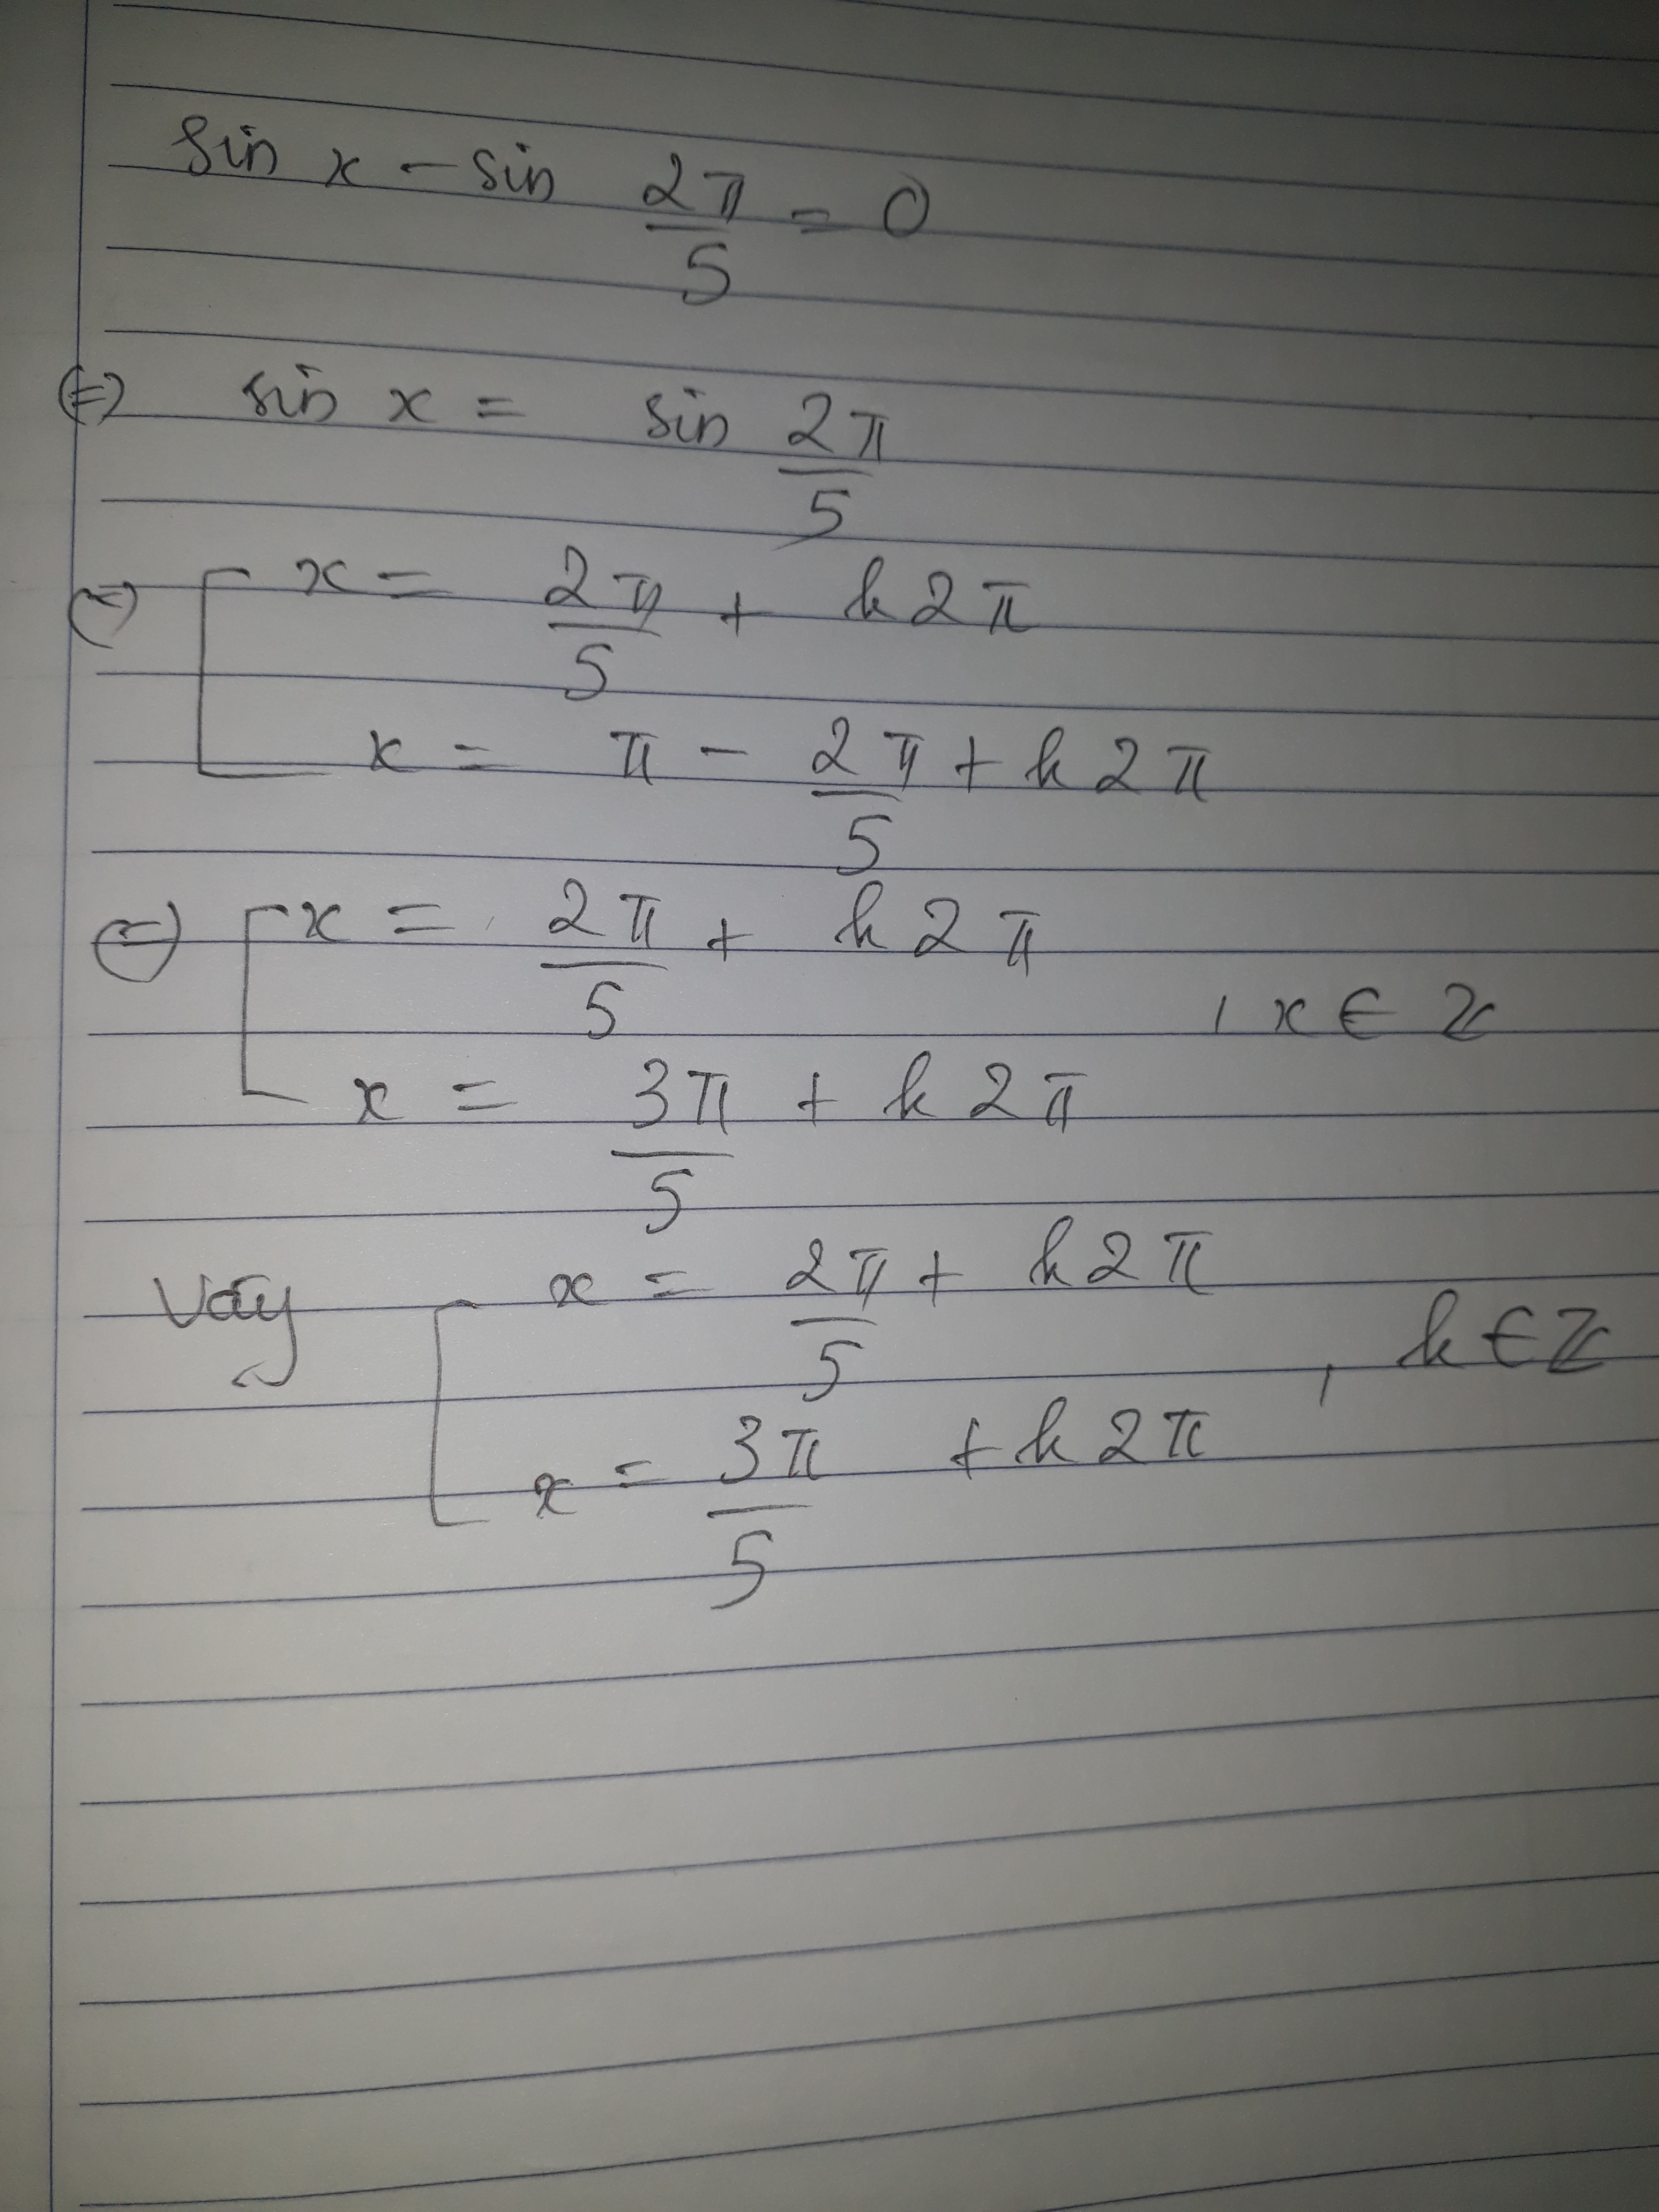 sin x - sin 2π/5 = 0
⇔ sin x = sin 2π/5
⇔ [ x = 2π/5 + k2π
x = π - 2π/5 + k2π
⇔ [ x = 2π/5 + k2π
, x ∈ ℤ
x = 3π/5 + k2π
Vậy [ x = 2π/5 + k2π
, k ∈ ℤ
x = 3π/5 + k2π